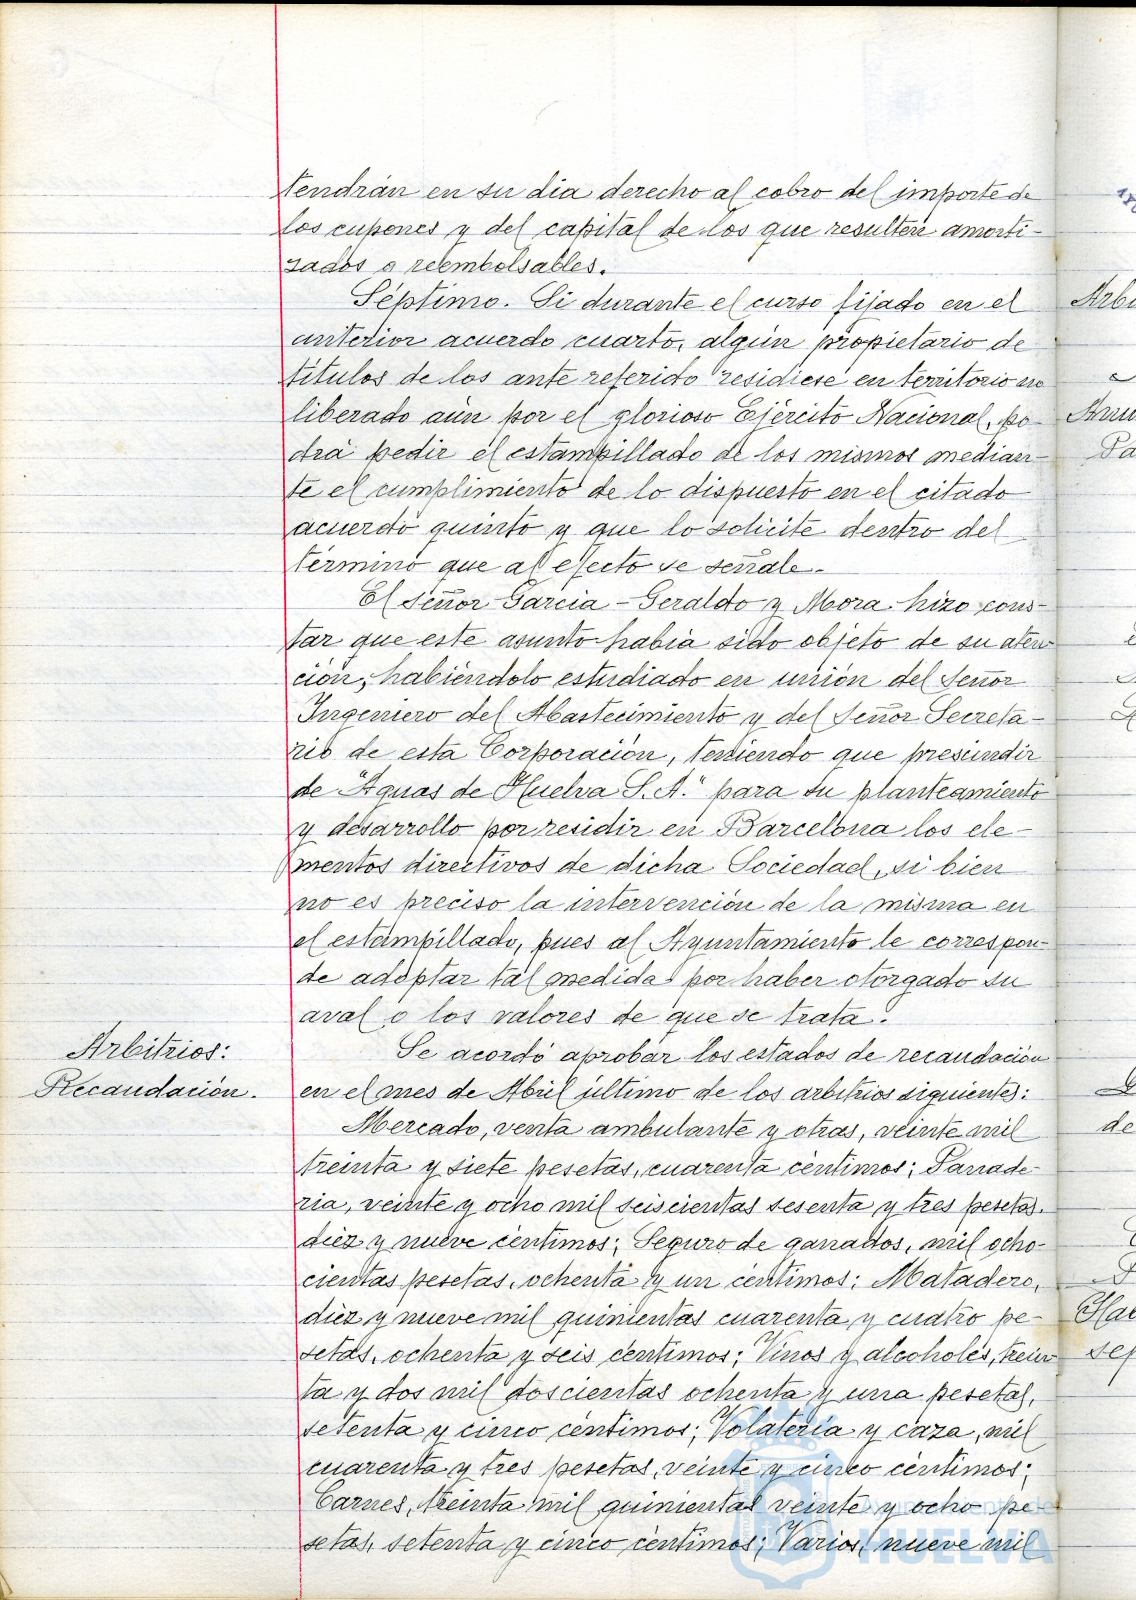 tendrán en su dia derecho al cobro del importe de
los cupones y del capital de los que resulten amorti-
zados o reembolsables.
Séptimo. Si durante el curso fijado en el
anterior acuerdo cuarto, algún propietario de
títulos de los ante referido residiese en territorio no
liberado aún por el glorioso Ejército Nacional, po-
drá pedir el estampillado de los mismos median-
te el cumplimiento de lo dispuesto en el citado
acuerdo quinto y que lo solicite dentro del
término que al efecto se señale.
El Señor Garcia-Geraldo y Mora hizo cons-
tar que este asunto había sido objeto de su aten-
ción, habiéndolo estudiado en unión del Señor
Ingeniero del Abastecimiento y del Señor Secreta-
rio de esta Corporación, teniendo que presindir
de "Aguas de Huelva S.A." para su planteamiento
y desarrollo por residir en Barcelona los ele-
mentos directivos de dicha Sociedad, si bien
no es preciso la intervención de la misma en
el estampillado, pues al Ayuntamiento le correspon-
de adoptar tal medida por haber otorgado su
aval o los valores de que se trata.
Arbitrios:
Recaudación.
Se acordó aprobar los estados de recaudación
en el mes de Abril último de los arbitrios siguientes:
Mercado, venta ambulante y otras, veinte mil
treinta y siete pesetas, cuarenta céntimos; Panade-
ria, veinte y ocho mil seiscientas sesenta y tres pesetas,
diez y nueve céntimos; Seguro de ganados, mil ocho-
cientas pesetas, ochenta y un céntimos; Matadero,
diez y nueve mil quinientas cuarenta y cuatro pe-
setas, ochenta y seis céntimos; Vinos y alcoholes, trein-
ta y dos mil doscientas ochenta y una pesetas,
setenta y cinco céntimos; Volatería y caza, mil
cuarenta y tres pesetas, veinte y cinco céntimos;
Carnes, treinta mil quinientas veinte y ocho pe-
setas, setenta y cinco céntimos; Varios, nueve mil
HUELVA